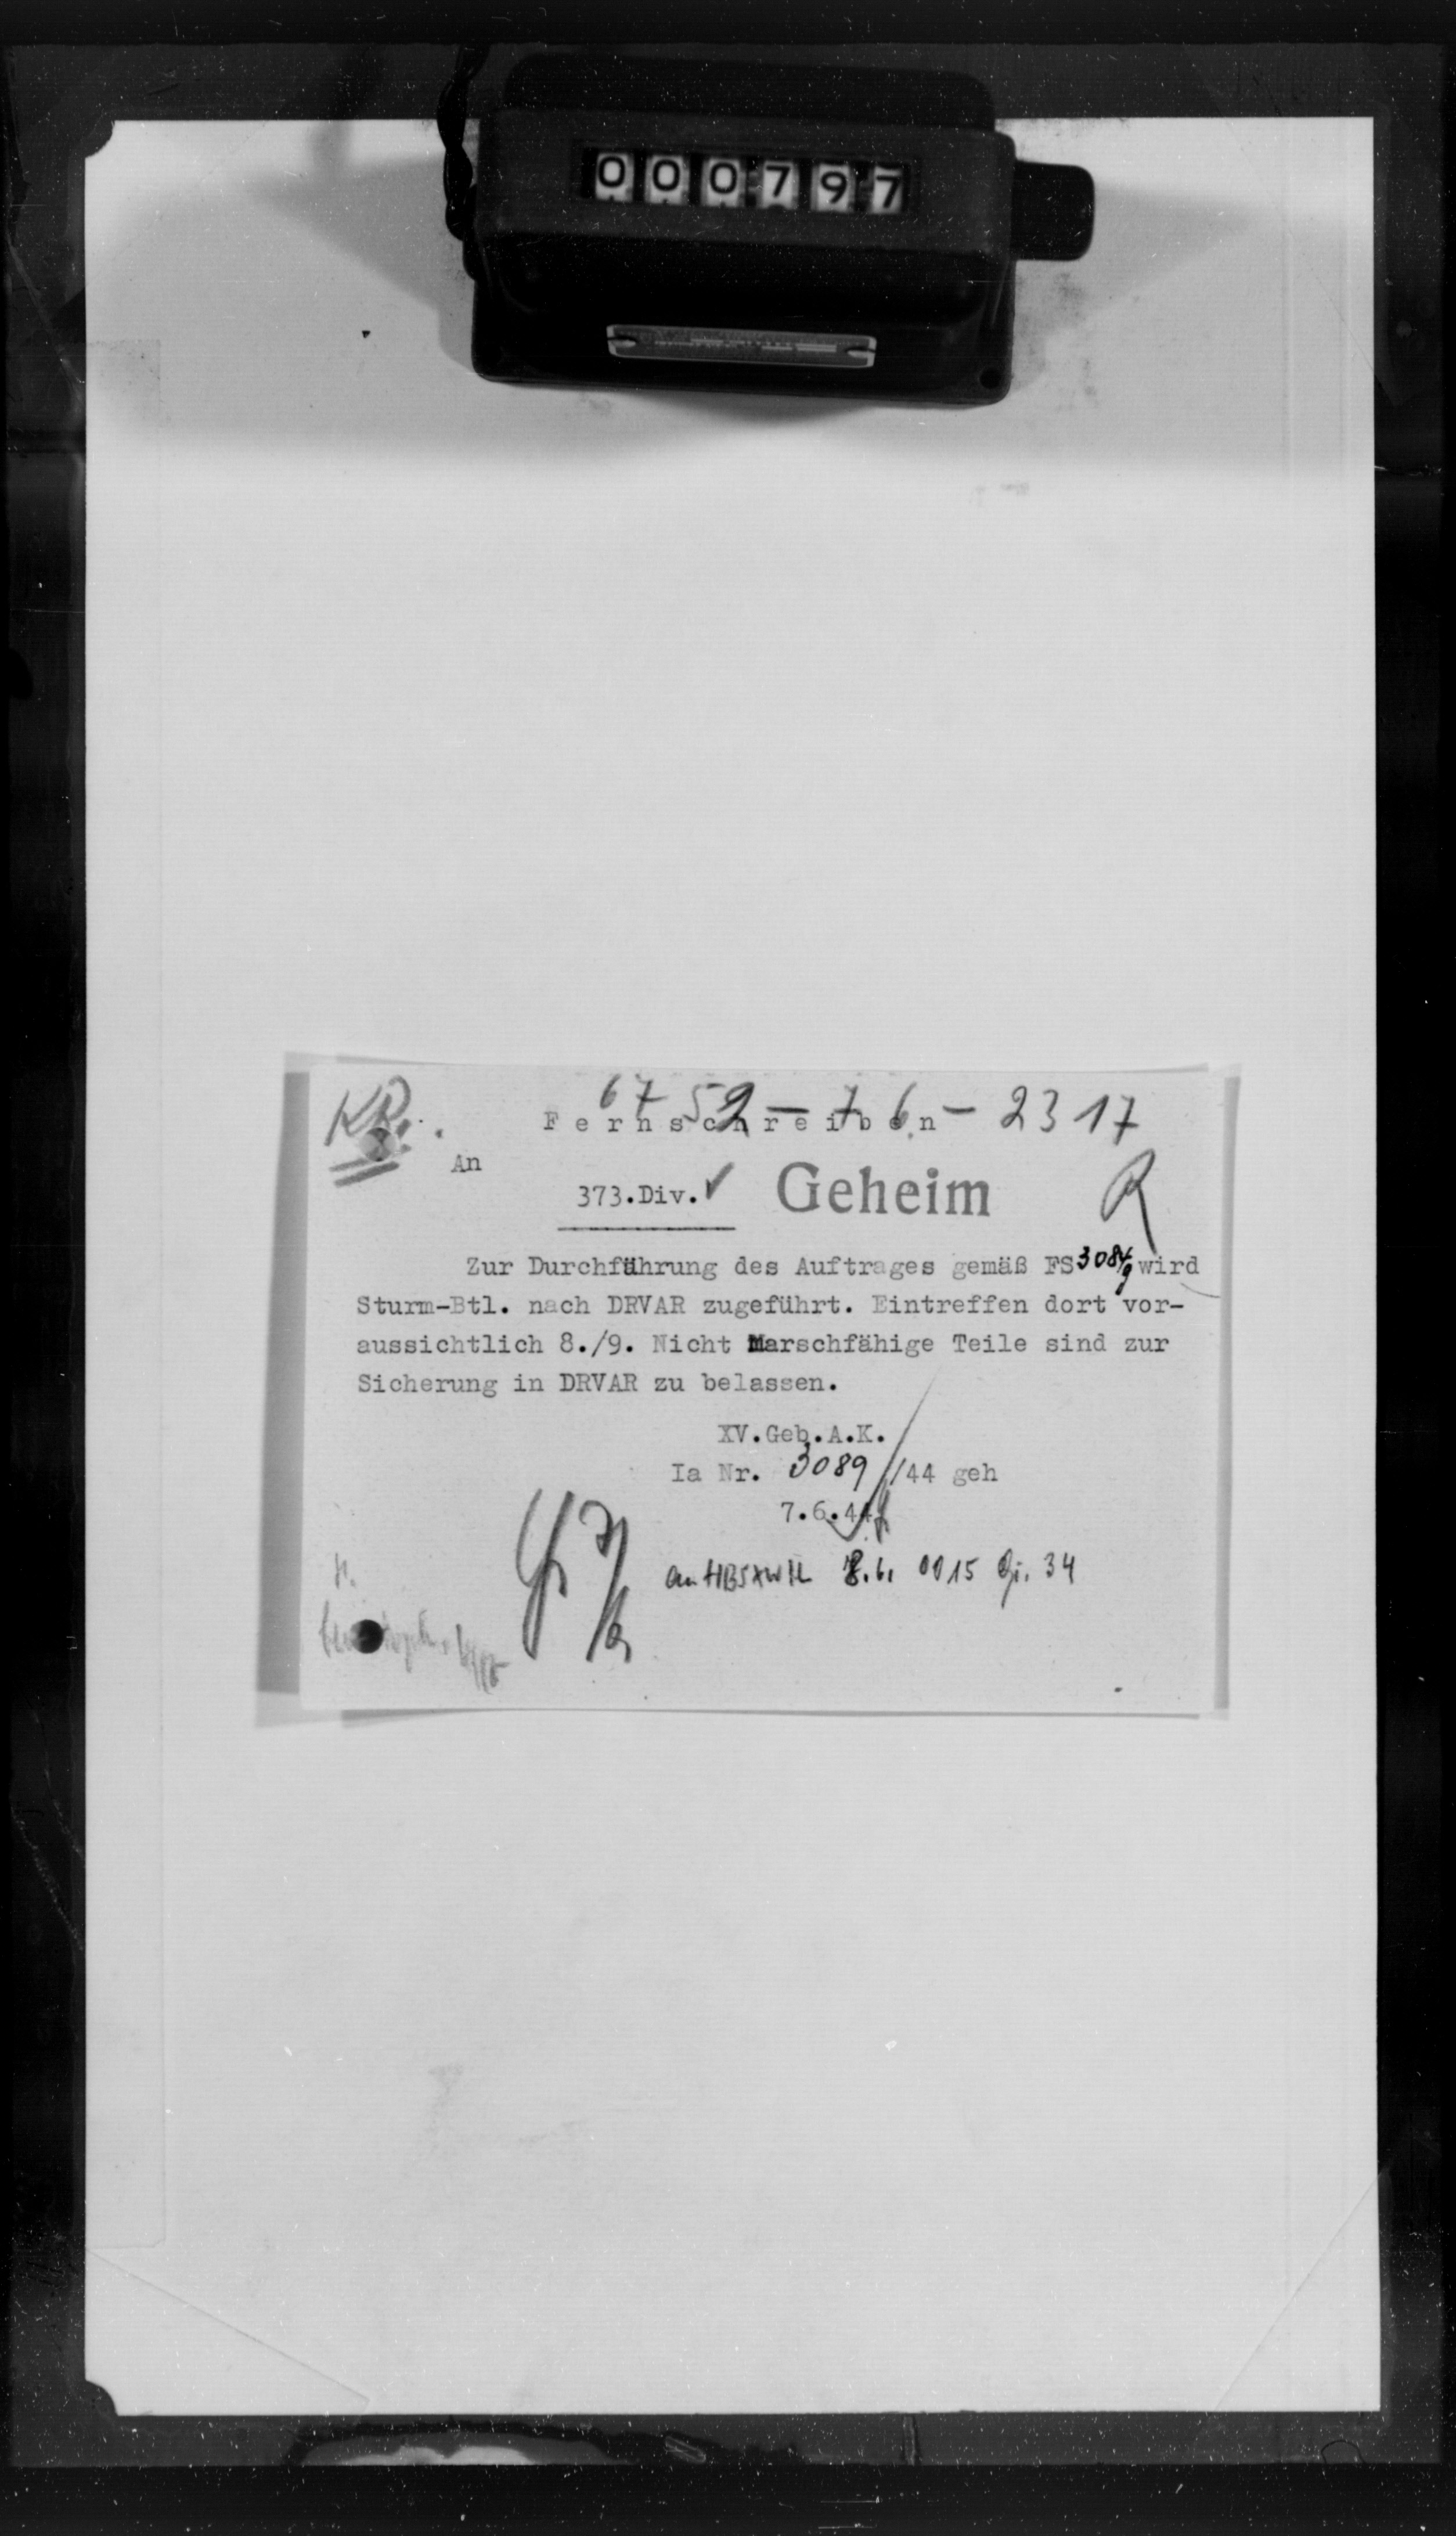 000797
KR.
6752 - 7.6. - 2317
Fernschreiben
An
373.Div. ✓ Geheim
R
Zur Durchführung des Auftrages gemäß FS 3084/g wird
Sturm-Btl. nach DRVAR zugeführt. Eintreffen dort vor-
aussichtlich 8./9. Nicht Marschfähige Teile sind zur
Sicherung in DRVAR zu belassen.
XV.Geb.A.K.
Ia Nr. 3089 /44 geh
7.6.44
an HBSXWIL 8.6. 0015 34